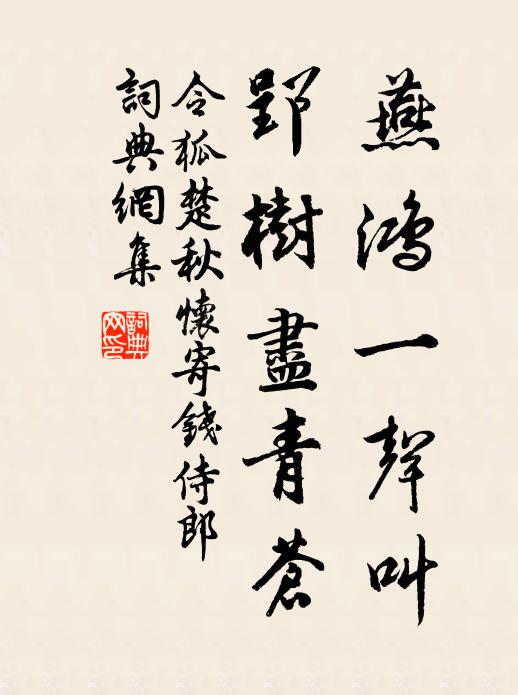 燕鴻一聲叫
郢樹盡青蒼
令狐楚秋懷寄錢侍郎
詞典網集
詞典網印